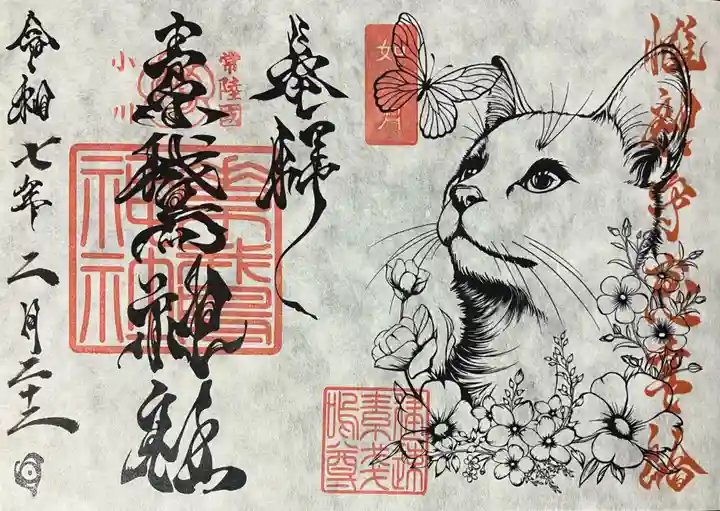 如月
奉拝
常陸国
小川
素鵞神社
素鵞神社
建速素戔嗚尊
令和七年二月二十二